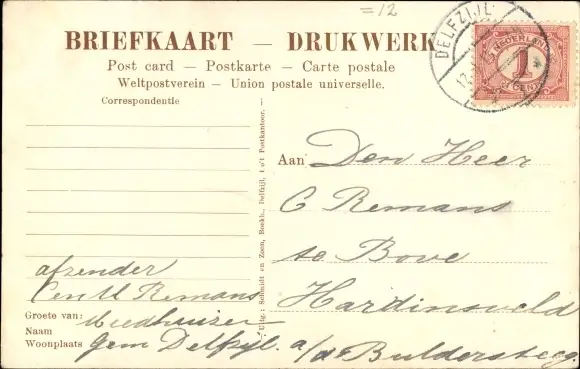 =12
BRIEFKAART — DRUKWERK
Post card — Postkarte — Carte postale
Weltpostverein — Union postale universelle.
Correspondentie
DELFZIJL
NEDERLAND
1
CENT
Aan Den Heer
C Remans
te Bove
Hardinxveld
a/d Buldersteeg.
afzender
Remans
Groete van: Meedhuizen
Naam
Woonplaats gem Delfzyl.
Uitg.: Schmidt en Zoon, Boekh., Delfzijl, t o't Postkantoor.